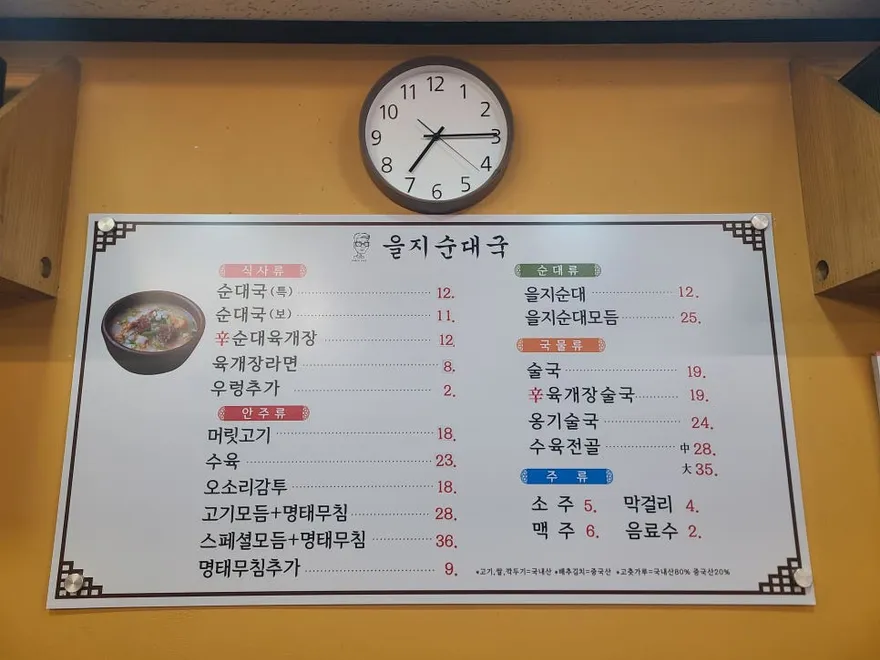 12
11
1
10
2
9
3
8
4
7
5
6
을지순대국
식사류
순대국(특) 12.
순대국(보) 11.
辛순대육개장 12
육개장라면 8.
우렁추가 2.
안주류
머릿고기 18.
수육 23.
오소리감투 18.
고기모듬+명태무침 28.
스페셜모듬+명태무침 36.
명태무침추가 9.
순대류
을지순대 12.
을지순대모듬 25.
국물류
술국 19.
辛육개장술국 19.
옹기술국 24.
수육전골 中 28.
大 35.
주류
소주 5. 막걸리 4.
맥주 6. 음료수 2.
*고기,쌀,깍두기=국내산 *배추김치=중국산 *고춧가루=국내산80% 중국산20%